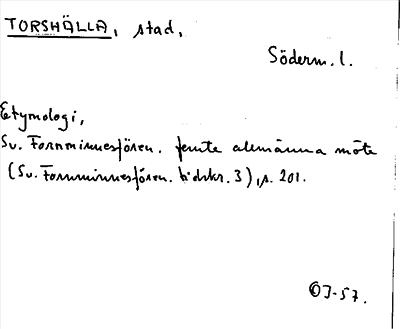 TORSHÄLLA, stad,
Söderm. l.
Etymologi,
Sv. Fornminnesfören. femte allmänna möte
(Sv. Fornminnesfören. tidskr. 3), s. 201.
OJ-57.